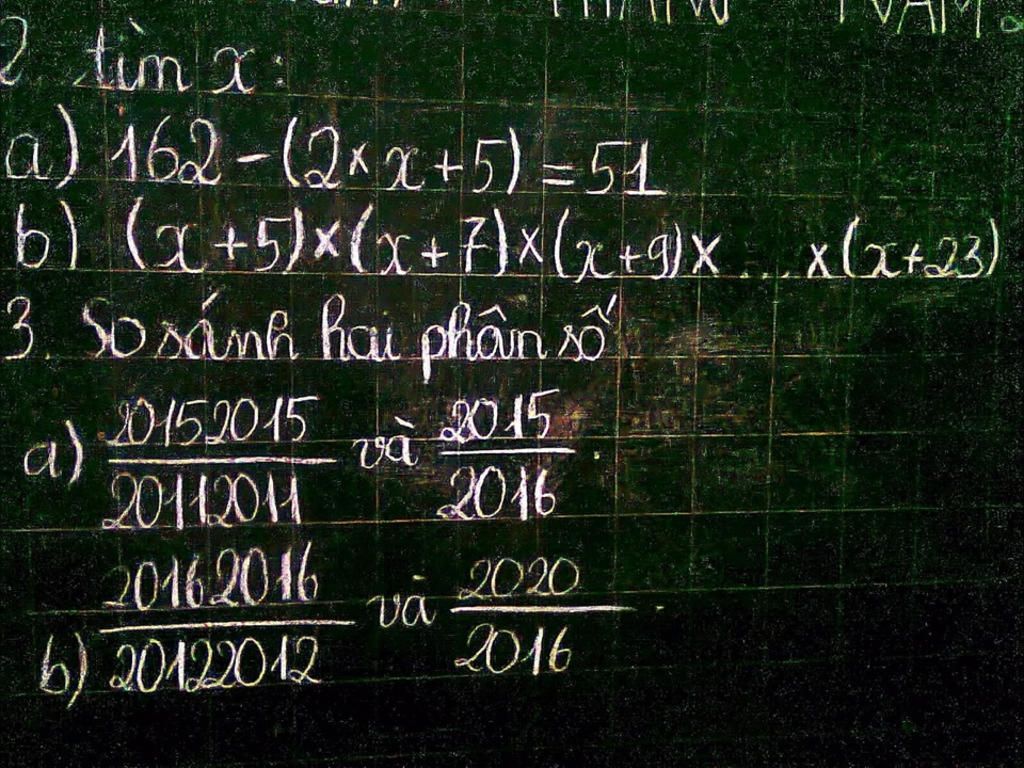 2 tìm x:
a) 162 - (2 × x + 5) = 51
b) (x + 5) × (x + 7) × (x + 9) × .... × (x + 23)
3. So sánh hai phân số
a) 20152015/20112011 và 2015/2016.
b) 20162016/20122012 và 2020/2016.